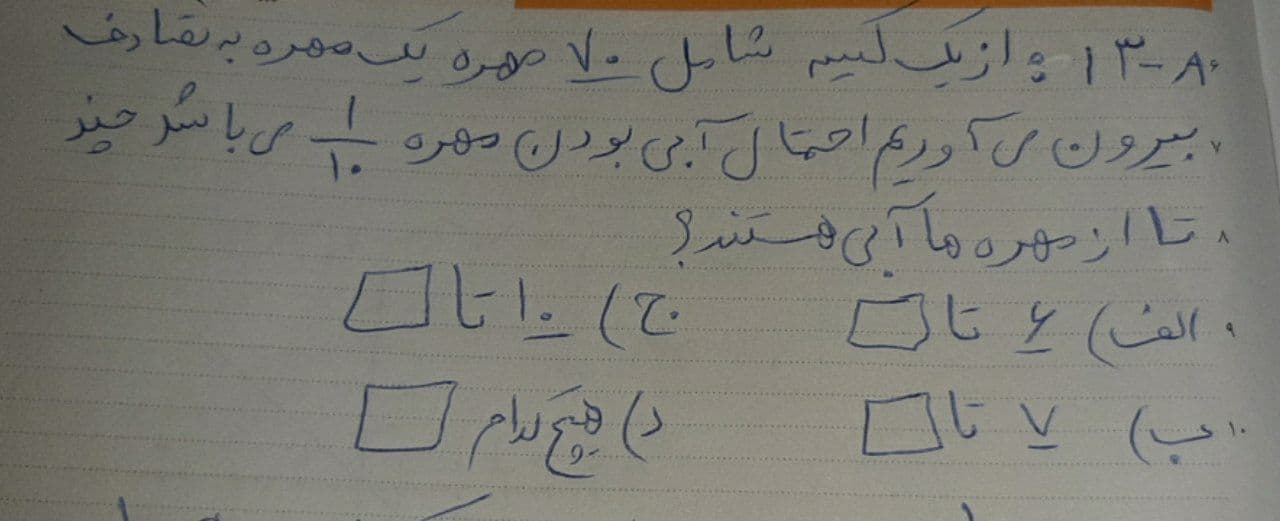 ۸-۱۳: از یک کیسه شامل ۷۰ مهره یک مهره به تصادف
بیرون می آوریم احتمال آبی بودن مهره ۱/۱۰ می باشد چند
تا از مهره ها آبی هستند؟
الف) ۶ تا □ ج) ۱۰ تا □
ب) ۷ تا □ د) هیچ کدام □